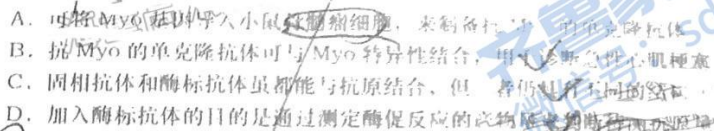 A. 可将 Myo 基因导入小鼠骨髓瘤细胞，来制备抗 的单克隆抗体
B. 抗 Myo 的单克隆抗体可与 Myo 特异性结合，用于诊断急性心肌梗塞
C. 固相抗体和酶标抗体虽都能与抗原结合，但 者仍具有不同的结
D. 加入酶标抗体的目的是通过测定酶促反应的产物